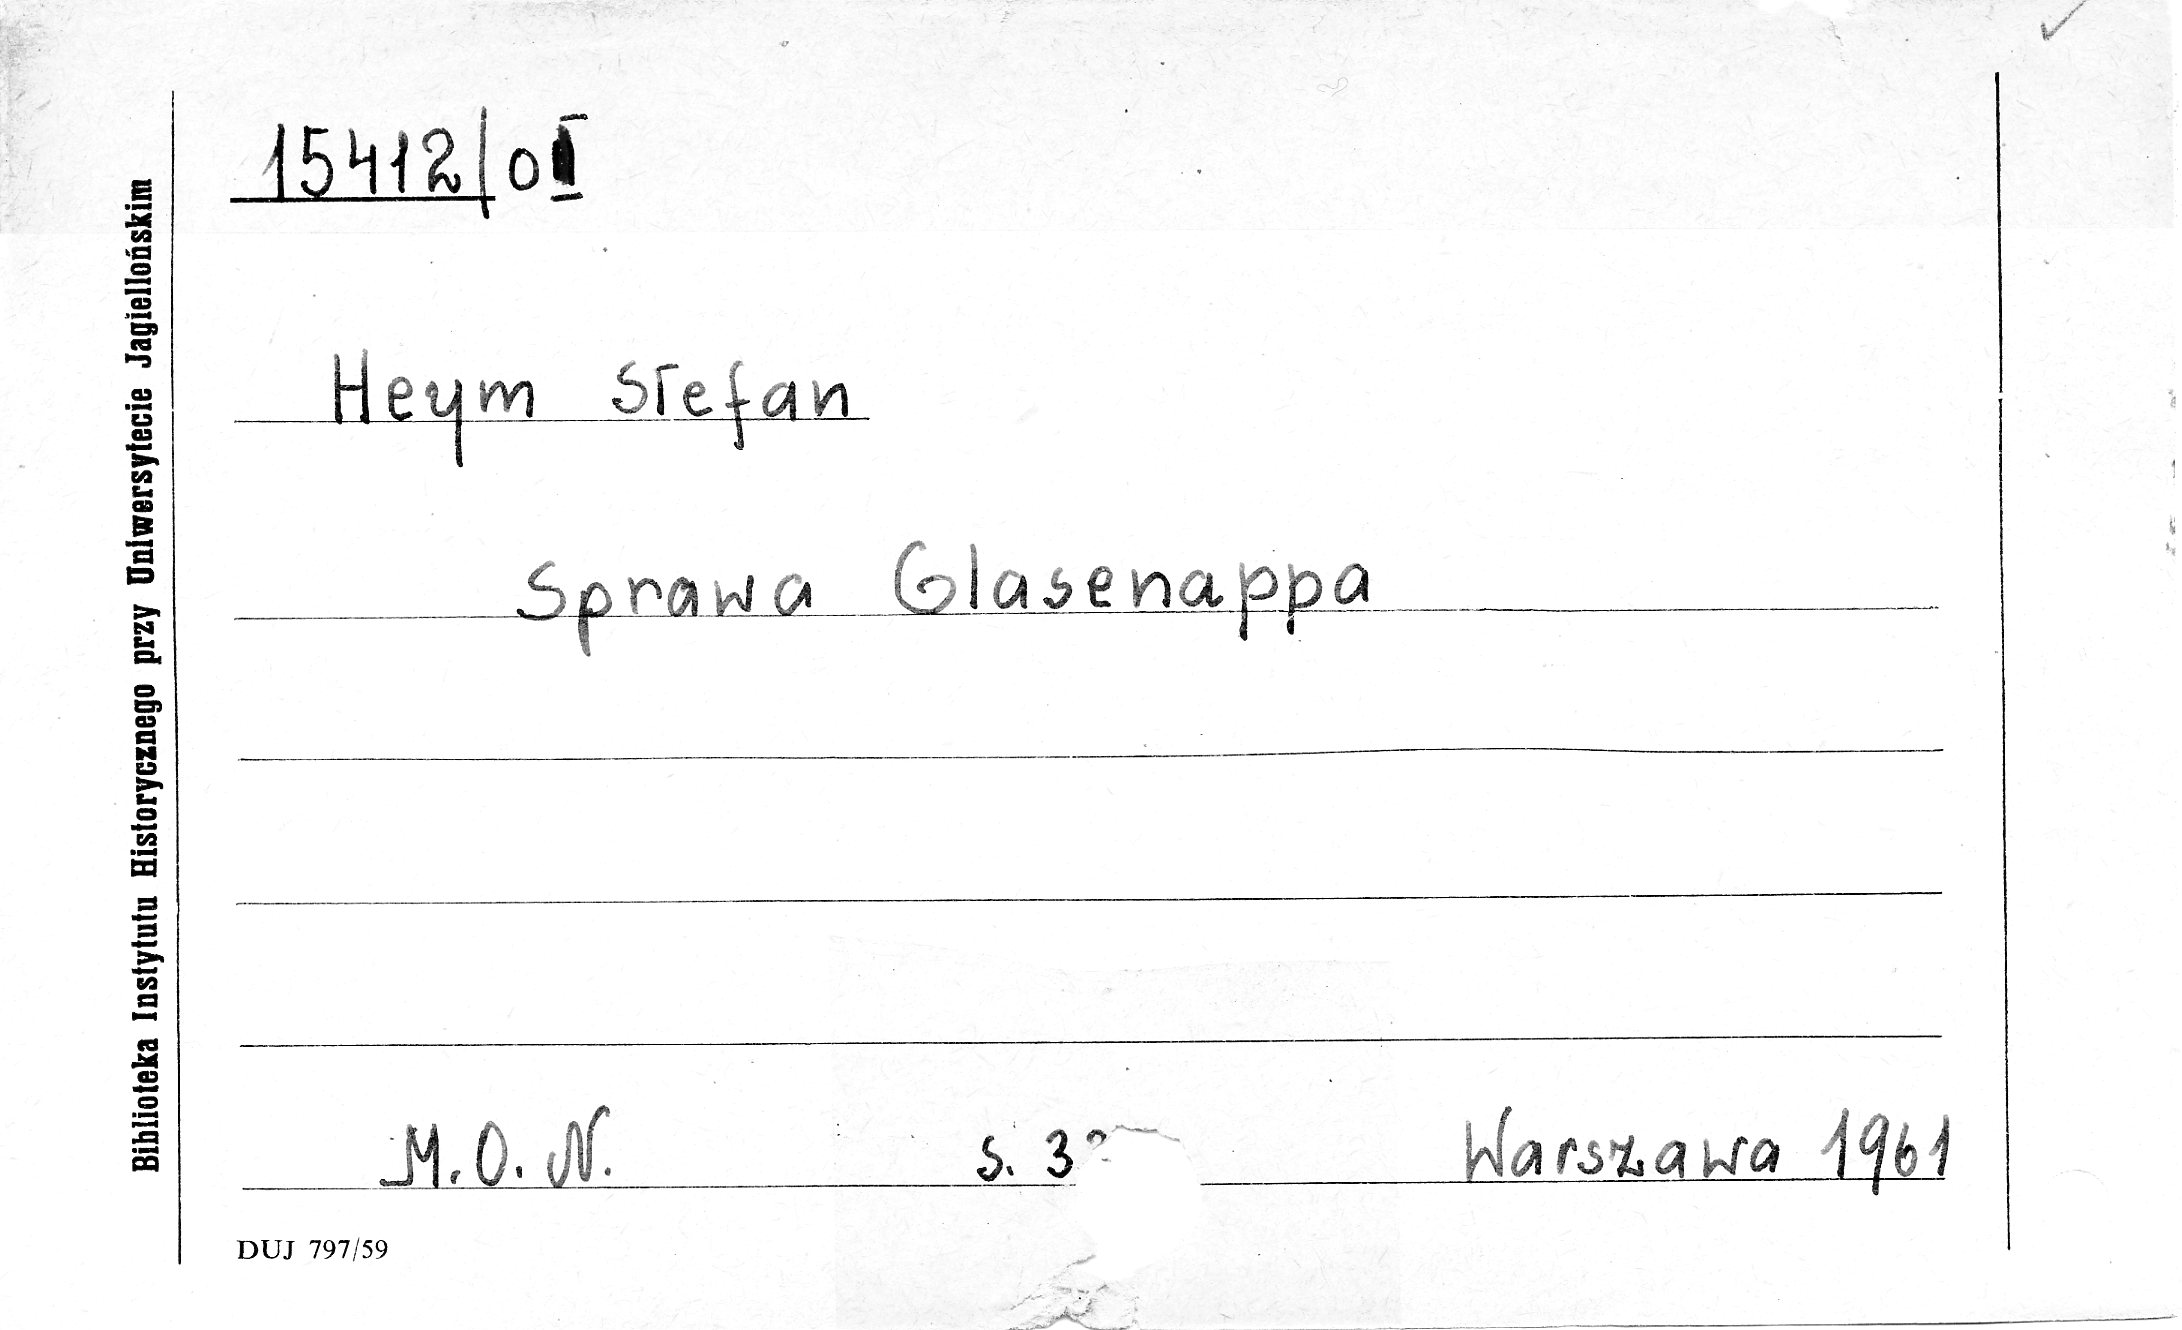 15412/0I
Heym Stefan
Sprawa Glasenappa
M. O. N. s. Warszawa 1961
DUJ 797/59
Biblioteka Instytutu Historycznego przy Uniwersytecie Jagiellońskim